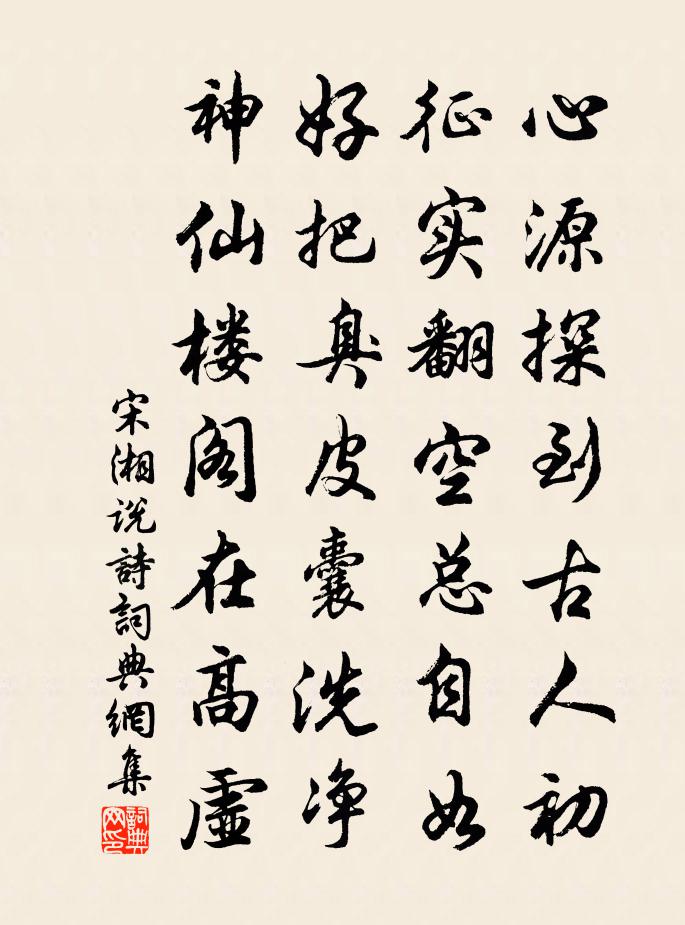 心源探到古人初
征实翻空总自如
好把臭皮囊洗净
神仙楼阁在高虚
宋湘说詩詞典網集
詞典网印